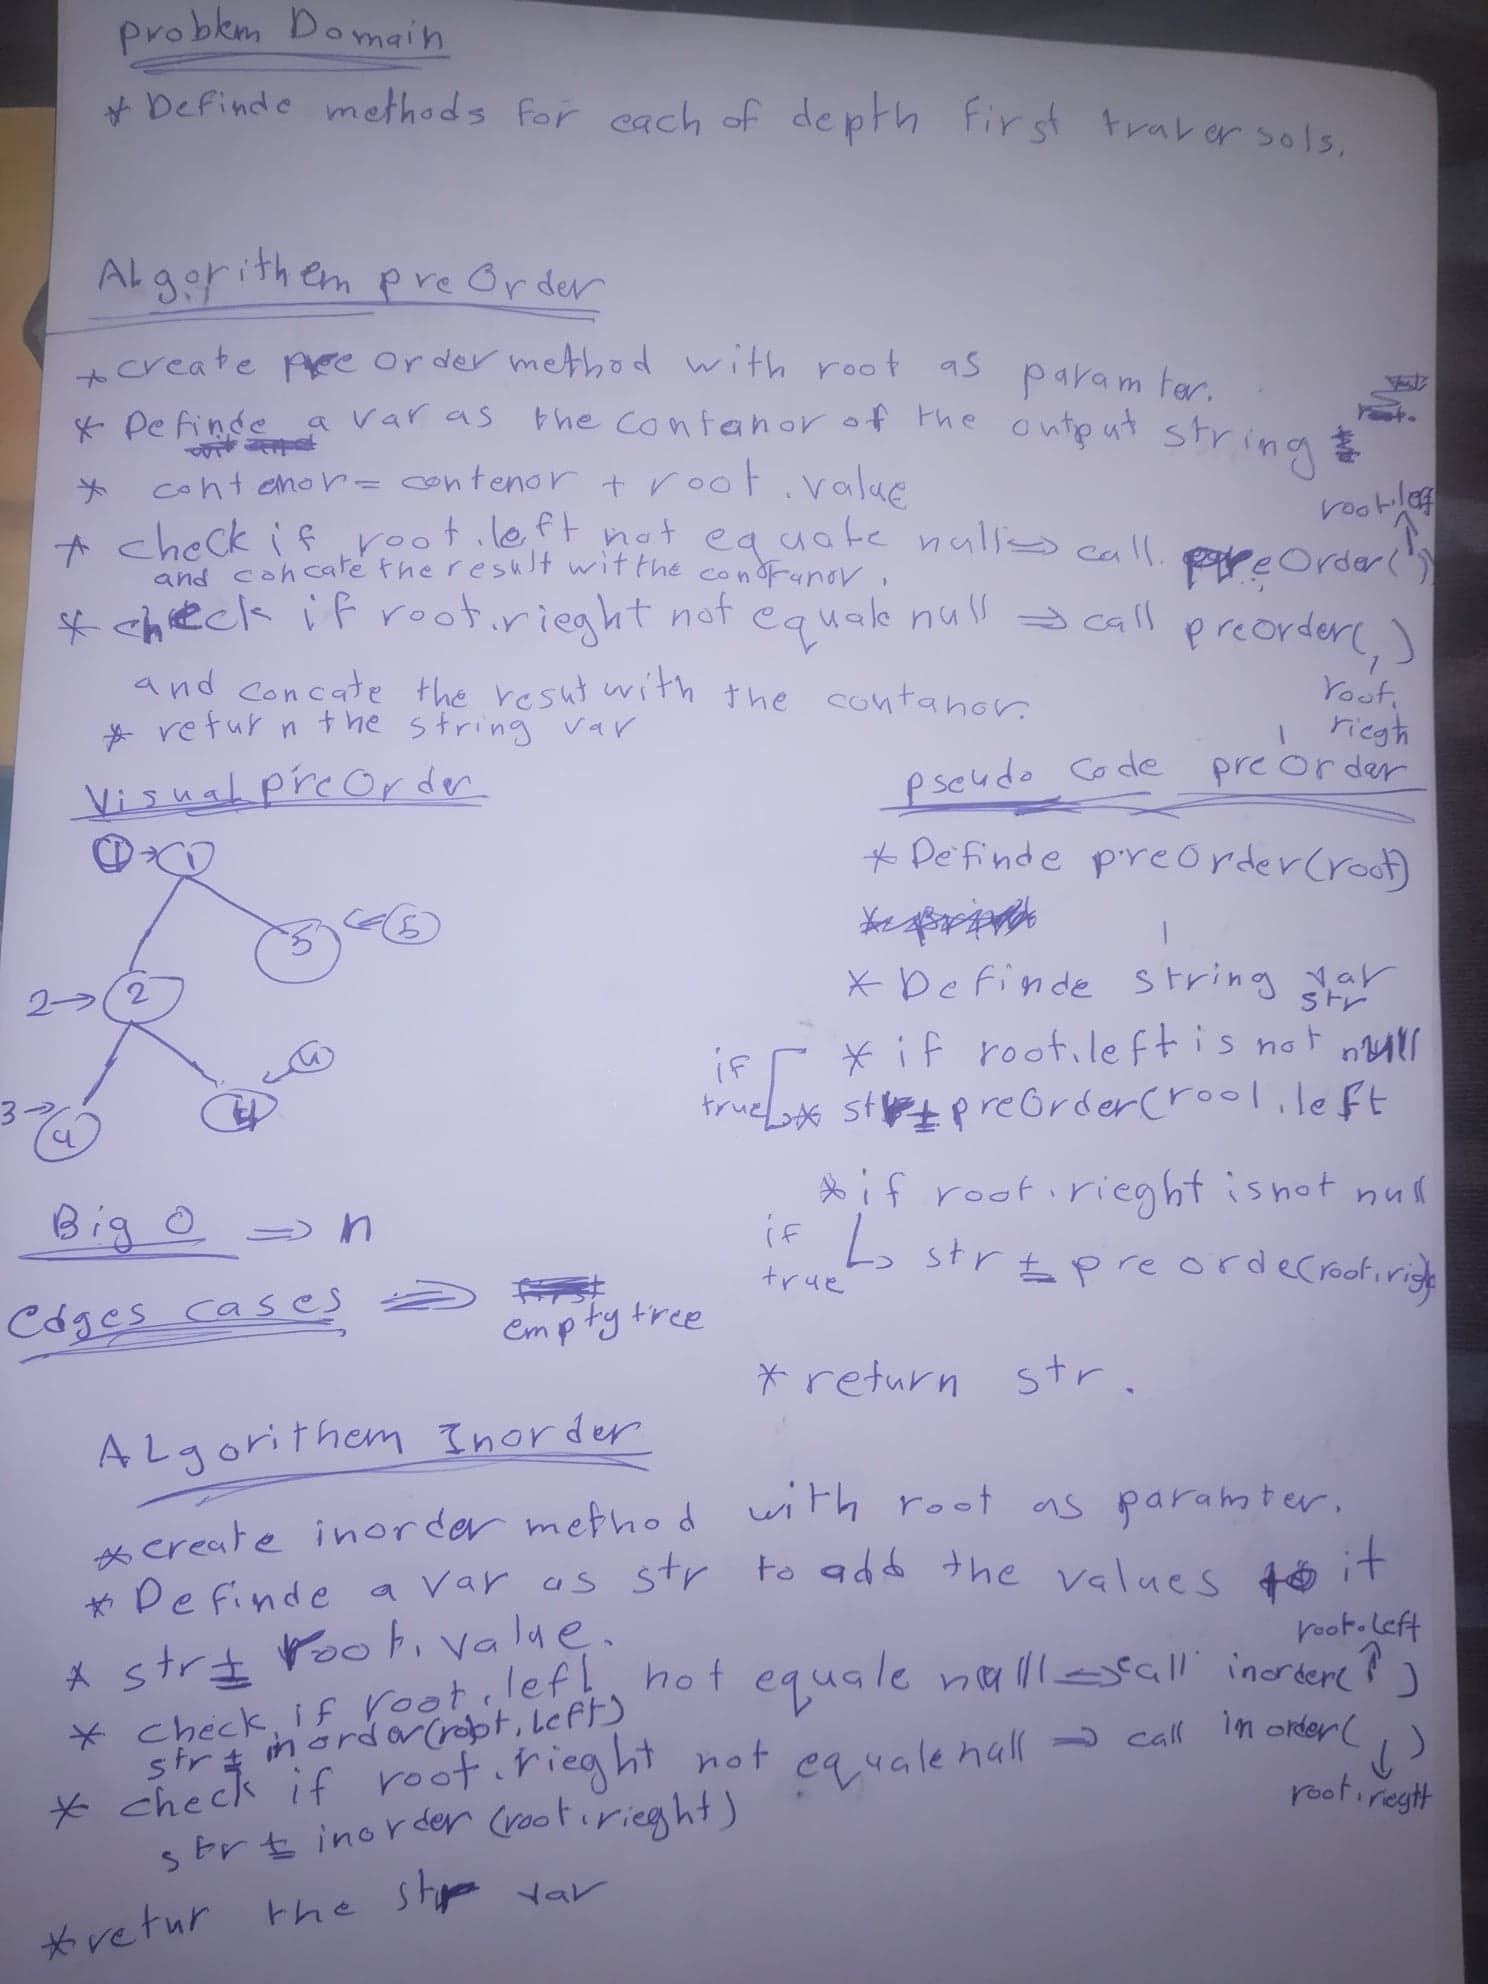 problem Domain
* Definde methods for each of depth first traversols.
ALgorithem preOrder
* create pre order method with root as paramter.
* Definde a var as the contanor of the output string
* contenor = contenor + root.value
root.left
* check if root.left not equale null => call preOrder( )
and concate the result wit the contanor,
* check if root.rieght not equale null => call preorder( )
root.
riegh
and concate the resut with the contanor.
* return the string var
Visual preOrder
① -> 1
5 <= 5
2 -> 2
4
3 -> 4
4
Big O => n
edges cases => empty tree
pseudo code preOrder
* Definde preOrder(root)
* Definde string var
str
* if root.left is not null
if
true
* str += preOrder(root.left
* if root.rieght is not null
if
true
str += pre orde(root.righ
* return str.
ALgorithem Inorder
* create inorder method with root as paramter.
* Definde a var as str to add the values to it
* str += root.value.
root.left
* check if root.left not equale null => call inorder( )
str += inorder(root.left)
* check if root.rieght not equale null => call in order( )
root.rieght
str += inorder (root.rieght)
* retur the str var